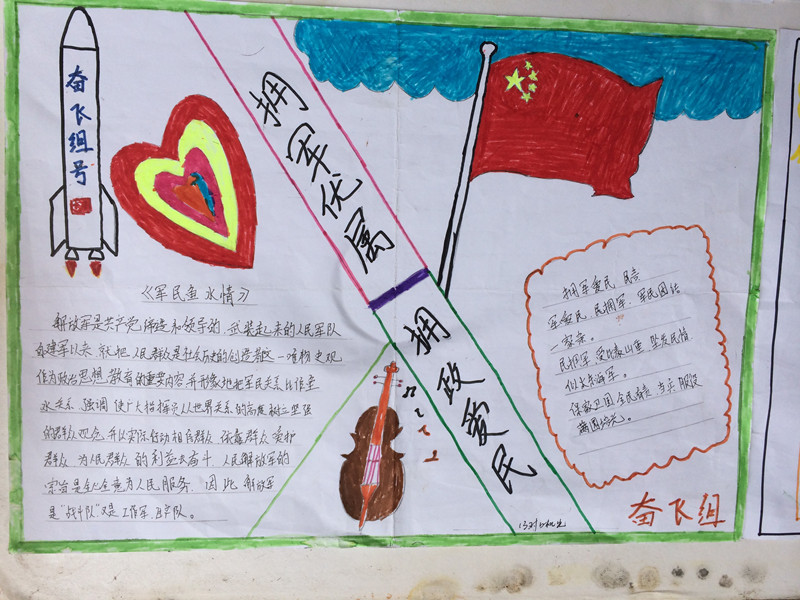 奋飞组号
拥军优属
拥政爱民
《军民鱼水情》
解放军是共产党缔造和领导的,武装起来的人民军队
自建军以来,就把人民群众是社会历史的创造者这一唯物史观
作为政治思想教育的重要内容,并形象地把军民关系比作鱼
水关系,强调使广大指挥员从世界关系的高度树立坚强
的群众观念,并从实际行动相信群众 依靠群众 爱护
群众 为人民群众的利益去奋斗,人民解放军的
宗旨是全心全意为人民服务,因此解放军
是“战斗队”又是工作军,生产队。
拥军爱民
军爱民,民拥军,军民团结
一家亲。
民拥军,
保家卫国
奋飞组